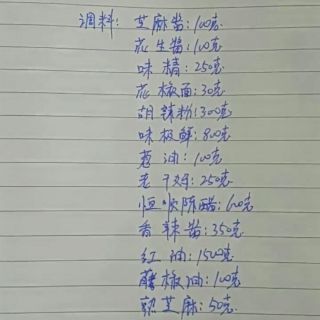 调料: 芝麻酱:100克
花生酱:100克
味精:250克
花椒面:30克
胡辣粉:300克
味极鲜:800克
葱油:100克
老干妈:250克
恒顺陈醋:600克
香辣酱:350克
红油:1500克
藤椒油:100克
熟芝麻:50克